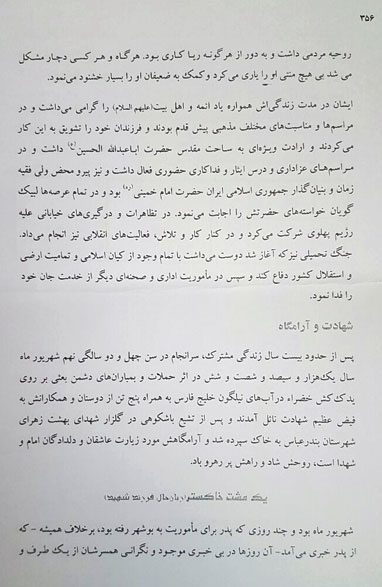 ۳۵۶
روحیه مردمی داشت و به دور از هرگونه ریا کاری بود. هرگاه و هر کسی دچار مشکل
می شد بی هیچ منتی او را یاری می‌کرد و کمک به ضعیفان او را بسیار خشنود می‌نمود.
ایشان در مدت زندگی‌اش همواره یاد ائمه و اهل بیت(علیهم السلام) را گرامی می‌داشت و در
مراسم‌ها و مناسبت‌های مختلف مذهبی پیش قدم بودند و فرزندان خود را تشویق به این کار
می‌کردند و ارادت ویژه‌ای به ساحت مقدس حضرت اباعبدالله الحسین(ع) داشت و در
مراسم‌های عزاداری و درس ایثار و فداکاری حضوری فعال داشت و نیز پیرو محض ولی فقیه
زمان و بنیان‌گذار جمهوری اسلامی ایران حضرت امام خمینی(ره) بود و در تمام عرصه‌ها لبیک
گویان خواسته‌های حضرتش را اجابت می‌نمود. در تظاهرات و درگیری‌های خیابانی علیه
رژیم پهلوی شرکت می‌کرد و در کنار کار و تلاش، فعالیت‌های انقلابی نیز انجام می‌داد.
جنگ تحمیلی نیز که آغاز شد دوست می‌داشت با تمام وجود از کیان اسلامی و تمامیت ارضی
و استقلال کشور دفاع کند و سپس در مأموریت اداری و صحنه‌ای دیگر از خدمت جان خود
را فدا نمود.
شهادت و آرامگاه
پس از حدود بیست سال زندگی مشترک، سرانجام در سن چهل و دو سالگی نهم شهریور ماه
سال یک‌هزار و سیصد و شصت و شش در اثر حملات و بمباران‌های دشمن بعثی بر روی
یدک کش خضراء در آب‌های نیلگون خلیج فارس به همراه پنج تن از دوستان و همکارانش به
فیض عظیم شهادت نائل آمدند و پس از تشیع باشکوهی در گلزار شهدای بهشت زهرای
شهرستان بندرعباس به خاک سپرده شد و آرامگاهش مورد زیارت عاشقان و دلدادگان امام و
شهدا است، روحش شاد و راهش پر رهرو باد.
یک مشت خاکستر(از زبان فرزند شهید)
شهریور ماه بود و چند روزی که پدر برای مأموریت به بوشهر رفته بود، برخلاف همیشه -که
از پدر خبری می‌آمد- آن روزها در بی خبری موجود و نگرانی همسرشان از یک طرف و